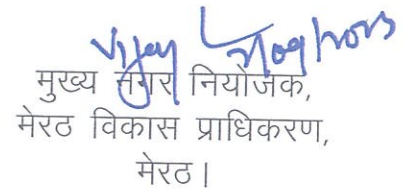 Vijay
मुख्य नगर नियोजक,
मेरठ विकास प्राधिकरण,
मेरठ।